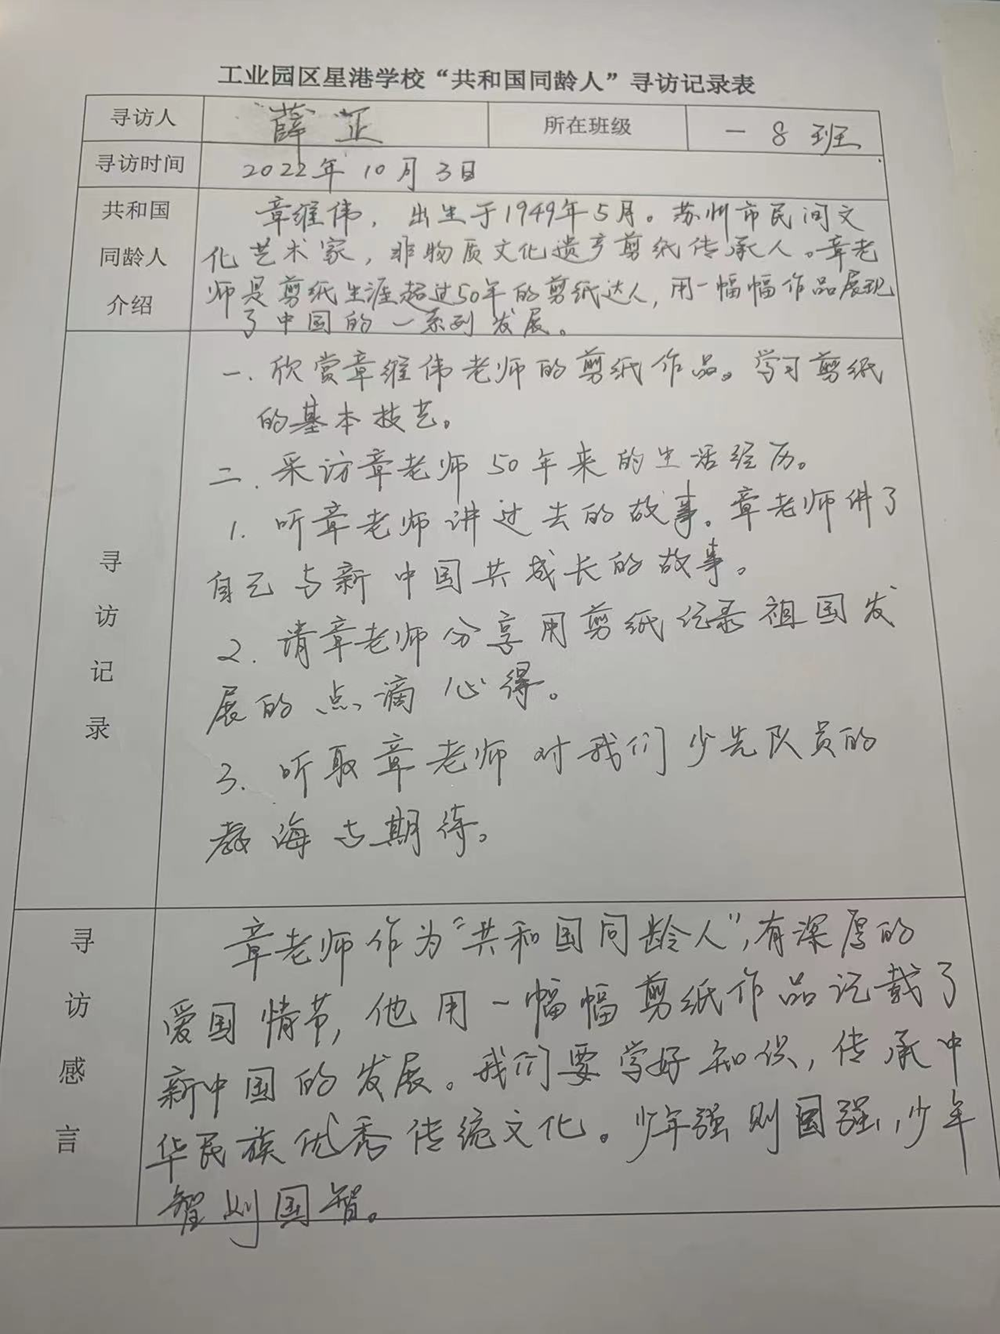 工业园区星港学校“共和国同龄人”寻访记录表
寻访人 薛正 所在班级 一8班
寻访时间 2022年10月3日
共和国
同龄人
介绍
章维伟，出生于1949年5月。苏州市民间文
化艺术家，非物质文化遗产剪纸传承人。章老
师是剪纸生涯超过50年的剪纸达人，用一幅幅作品展现
了中国的一系列发展。
寻
访
记
录
一.欣赏章维伟老师的剪纸作品。学习剪纸
的基本技艺。
二.采访章老师50年来的生活经历。
1.听章老师讲过去的故事。章老师讲了
自己与新中国共成长的故事。
2.请章老师分享用剪纸记录祖国发
展的点滴心得。
3.听取章老师对我们少先队员的
教海与期待。
寻
访
感
言
章老师作为“共和国同龄人”，有深厚的
爱国情节，他用一幅幅剪纸作品记载了
新中国的发展。我们要学好知识，传承中
华民族优秀传统文化。少年强则国强，少年
智则国智。